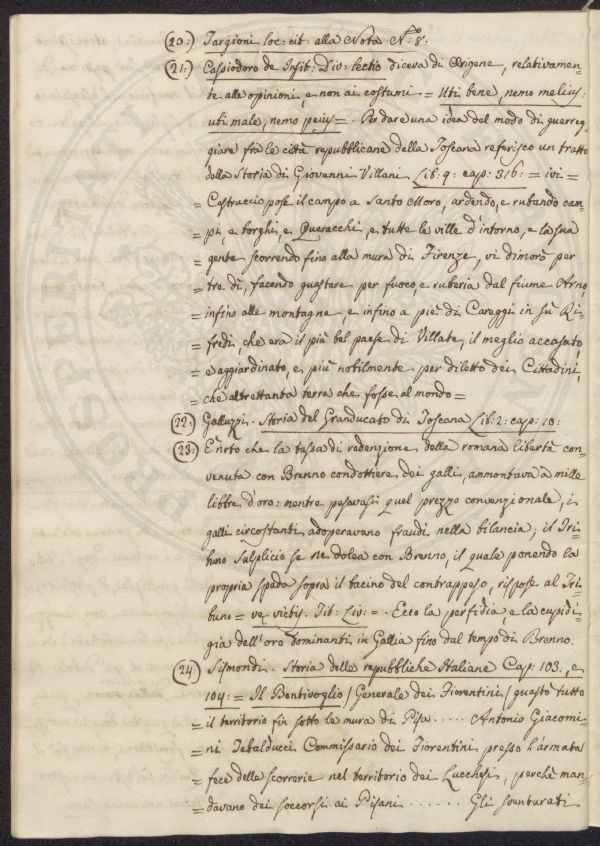 (20:) Targioni loc: cit: alla Nota N.º 8:
(21:) Cassiodoro de Instit: Div: lectio diceva di Origene, relativamen=
te alle opinioni, e non ai costumi = Ubi bene, nemo melius:
ubi male, nemo pejus = . Per dare una idea del modo di guerreg=
giare fra le città repubblicane della Toscana referisco un tratto
della Storia di Giovanni Villani Lib: 9: cap: 316: = ivi =
= Castruccio pose il campo a Santo Moro, ardendo, e rubando cam=
= pi, e borghi, e Quaracchi, e tutte le ville d'intorno, e la sua
= gente scorrendo fino alla mura di Firenze, vi dimorò per
= tre dì, facendo guastare per fuoco, e ruberia dal fiume Arno
= infino alle montagne, e infino a piè di Careggi in sù Ri=
= fredi, che era il più bel paese di Villate, il meglio accasato,
= e aggiardinato, e più nobilmente per diletto dei Cittadini,
= che altrettanta terra che fosse al mondo =
(22:) Galluzzi. Storia del Granducato di Toscana Lib: 2: cap: 10:
(23:) È noto che la tassa di redenzione della romana libertà con=
venuta con Brenno condottiere dei galli, ammontava a mille
libbre d'oro: mentre pesavasi quel prezzo convenzionale, i
galli circostanti adoperavano fraudi nella bilancia; il Tri=
buno Sulplicio se ne dolea con Brenno, il quale ponendo la
propria spada sopra il bacino del contrappeso, rispose al Tri=
buno = væ victis. Tit: Liv: = . Ecco la perfidia, e la cupidi=
gia dell'oro dominanti in Gallia fino dal tempo di Brenno.
(24:) Sismondi. Storia delle repubbliche Italiane Cap: 103:, e
104: = Il Bentivoglio (Generale dei Fiorentini) guastò tutto
= il territorio fin sotto le mura di Pisa ..... Antonio Giacomi=
= ni Tebalducci Commissario dei Fiorentini presso l'armata
= fece delle scorrerie nel territorio dei Lucchesi, perchè man=
= davano dei soccorsi ai Pisani ...... Gli sventurati